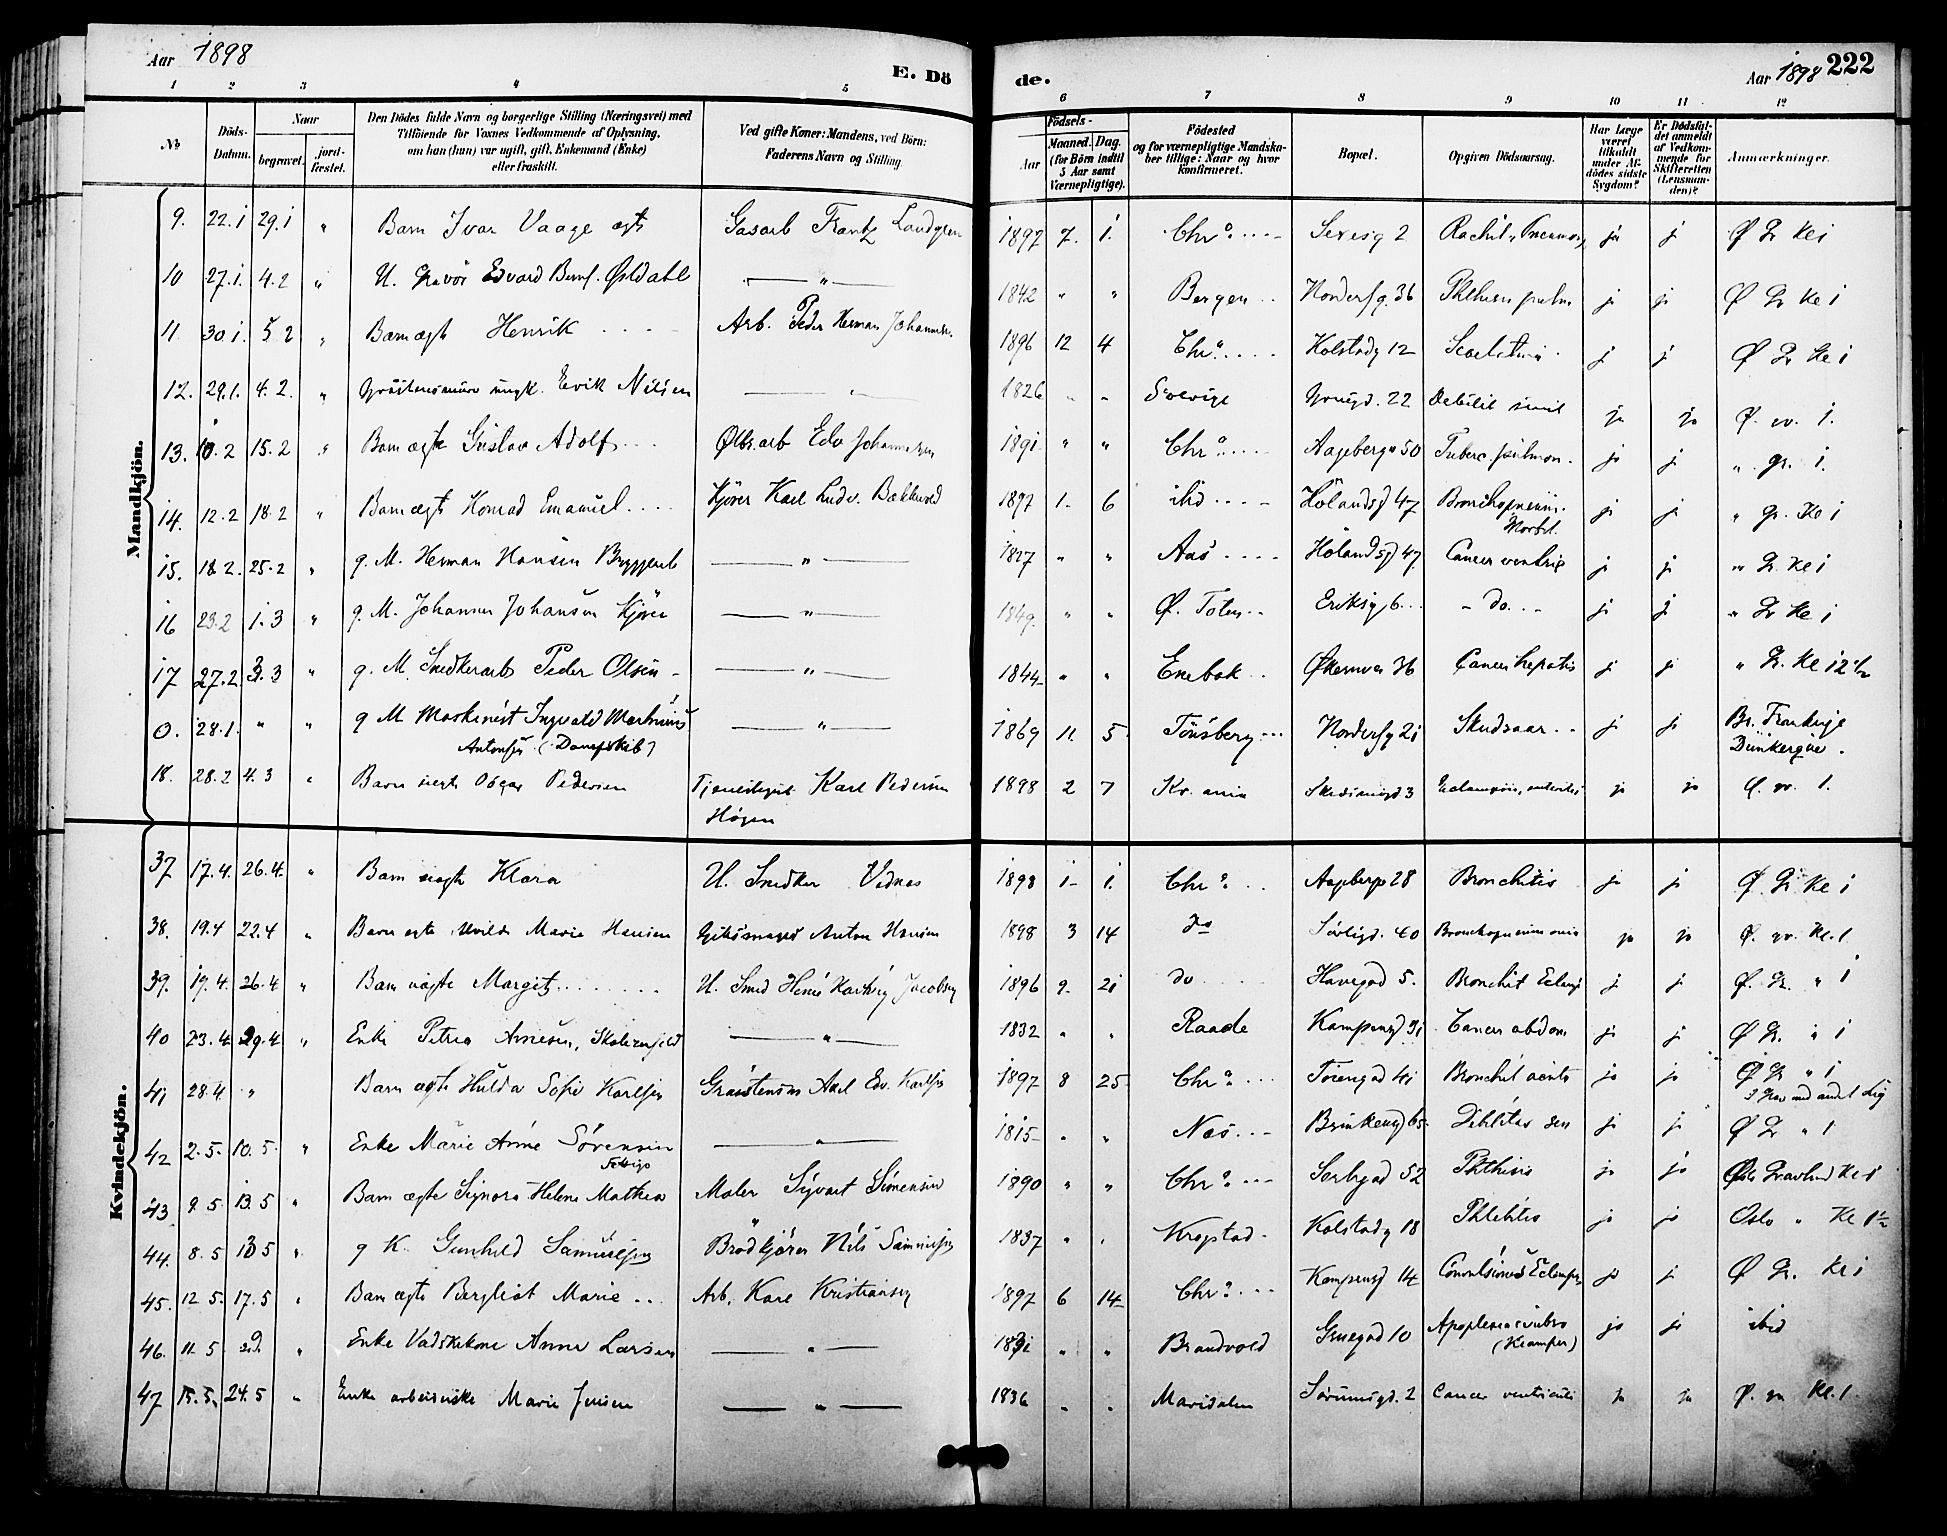 Aar 1898
E. Dö
de.
Aar 1898 222
1 2 3 4 5 6 7 8 9 10 11 12
№
Döds-Datum.
Naar
begravet.
jord-fæstet.
Den Dödes fulde Navn og borgerlige Stilling (Næringsvei) med
Tilföiende for Voxnes Vedkommende af Oplysning,
om han (hun) var ugift, gift, Enkemand (Enke)
eller fraskilt.
Ved gifte Koner: Mandens, ved Börn:
Faderens Navn og Stilling.
Födsels-
Aar
Maaned. Dag.
(for Börn indtil
5 Aar samt
Værnepligtige).
Födested
og for værnepligtige Mandska-
ber tillige: Naar og hvor
konfirmeret.
Bopæl.
Opgiven Dödsaarsag.
Har Læge
været
tilkaldt
under Af-
dödes sidste
Sygdom?
Er Dödsfal-
det anmeldt
af Vedkom-
mende for
Skifteretten
(Lensman-
den)?
Anmærkninger.
Mandkjön.
9. 22.1 29.1 " Barn Ivar Vaage ægt Gasarb Frantz Landgren 1897 7. 1. Chr.a 2 Rachit, ja j Ø Gr Kl 1
10 27.1. 4.2 " U. Gravör Edvard Bernh. Østdahl — " — 1842 " " Bergen Norderfg. 36 Phthisis pulm j j Ø Gr Kl 1
11 30.1. 5.2 " Barn ægte Henrik Arb. Peder Herman Johannesen 1896 12 4 Chr.a Kolstadg 12 j j Ø Gr Kl 1
12. 29.1. 4.2. " ungk. Erik Nilsen — " — 1826 " " Sverige 22 Debilit senil ja ja Ø. gr. 1.
13. 10.2 15.2 " Barn ægte Gustav Adolf Ølbs.arb Edv Johannesen 1891 " " Chr.a Aagebergv 50 Tuberc. pulmon. j j " gr. 1.
14. 12.2 18.2 " Barn ægt Konrad Emanuel Kjører Karl Ludv. Bakkevold 1897 1 6 ibid Hölandsg 47 Bronchopneum. Morbil. j j " Gr. Kl 1
15. 18.2. 25.2 " g. M. Herman Hansen Bryggearb — " — 1827 " " Aas Hölandsg 47 Cancer ventric j j " Gr Kl 1
16 23.2 1.3 " g. M. Johannes Johansen Kjører — " — 1849. " " Ø. Toten Eriksg. 6 - do. - j j " Gr Kl 1
17 27.2. 3.3 " g. M. Snedkerarb Peder Olsen — " — 1844 " " Enebak Økernvei 36 Cancer hepatis j j " Gr. Kl 12 1/2
0. 28.1. " " g M Maskinist Ingvald Martinius — " — 1869 11 5 Tönsberg Norderfg 21 Skudsaar j j Br. Frankrige
Antonsen (Dampskib) Dünkerque.
18. 28.2 4.3 " Barn uegt Oscar Pedersen Karl Pedersen 1898 2 7 Kr.ania 3 Eclampsia, enteritis ja ja Ø. gr. 1.
Högen
Kvindekjön.
37 17.4. 26.4. " Barn uægte Klara U. Snedker Vidnes 1898 1 1. Chr.a Aagebergv 28 Bronchitis ja j Ø Gr Kl 1
38. 19.4 22.4 " Barn egte Marie Hansen Anton Hansen 1898 3 14 do Sörligt. 40 Bronchopneumonia ja ja Ø. gr. Kl. 1
39. 19.4. 26.4 " Barn uægte Margit U. Smed Jacobsen 1896 9. 21 do Havegad 5. Bronchit Eclamp j j Ø. Gr. " 1
40 23.4 29.4 " Enke Petrea Arnesen, — " — 1832 " " Raade Kampensg 31 Cancer abdom j j Ø Gr. " 1
41 28.4. " Barn ægte Hulda Sofie Karlsen Axel Edv. Karlsen 1897 8 25 Chr.a Töiengad 41 Bronchit acuta ja ja Ø Gr " 1
I Grav med andet Lig
42 2.5. 10.5. " Enke Marie Arne Sörensen — " — 1815 " " Næs 65 Debilitas sen j j Ø Gr " 1
43 9.5 13.5 " Barn ægte Signora Helene Mathea Maler Sigvart Simensen 1890 " " Chr.a 52 Phthisis ja ja Kl 1
44. 8.5 13.5 " g K. Gunhild Samuelsen Brödkjører Nils Samuelsen 1837 " " Krogstad Kolstadg 18 ja ja Oslo " Kl 1 1/2
45. 12.5. 17.5 " Barn ægte Bergliot Marie Arb. Karl Kristiansen 1897 6 14 Chr.a Kampensg 14 Eclampsi ja j Ø Gr. Kl 1
46. 11.5 " Enke Vadskekone Anne Larsen — " — " " Brandvold Gruegad 10 Apoplexia cerebri (Kramper) ja j ibid
47 15.5. 24.5 " Enke Marie Jensen — " — 1836 " " Maridalen Sörumsgd. 2 Cancer ventriculi ja ja Ø. gr Kl. 1.